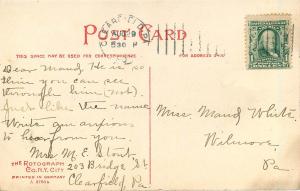 POST CARD
CLEARFIELD
AUG 9
5 30 P
THIS SPACE MAY BE USED FOR CORRESPONDENCE.
FOR ADDRESS ONLY.
Dear Maud, He is so
thin you can see
through him (not).
Just like the name
Write am anxious
to hear from you.
Mrs M E Stout
203 Bridge St
Clearfield Pa
Miss. Maud White.
Wilmore.
Pa
THE ROTOGRAPH
CO., N.Y. CITY
PRINTED IN GERMANY